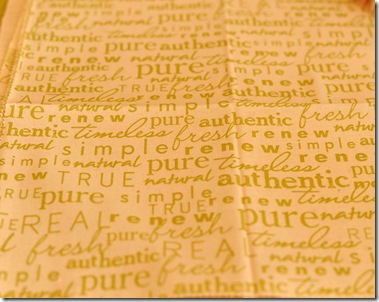 authentic pure authentic
simple renew natural pure
authentic pure authentic timeless
simple renew natural simple
TRUE fresh natural pure
authentic TRUE fresh renew
REAL timeless simple timeless
pure renew pure authentic fresh
authentic timeless fresh renew
simple renew simple renew timeless
simple natural pure timeless
renew TRUE natural authentic
TRUE pure simple renew
REAL renew TRUE pure natural
pure fresh REAL timeless
fresh authentic simple renew
fresh natural